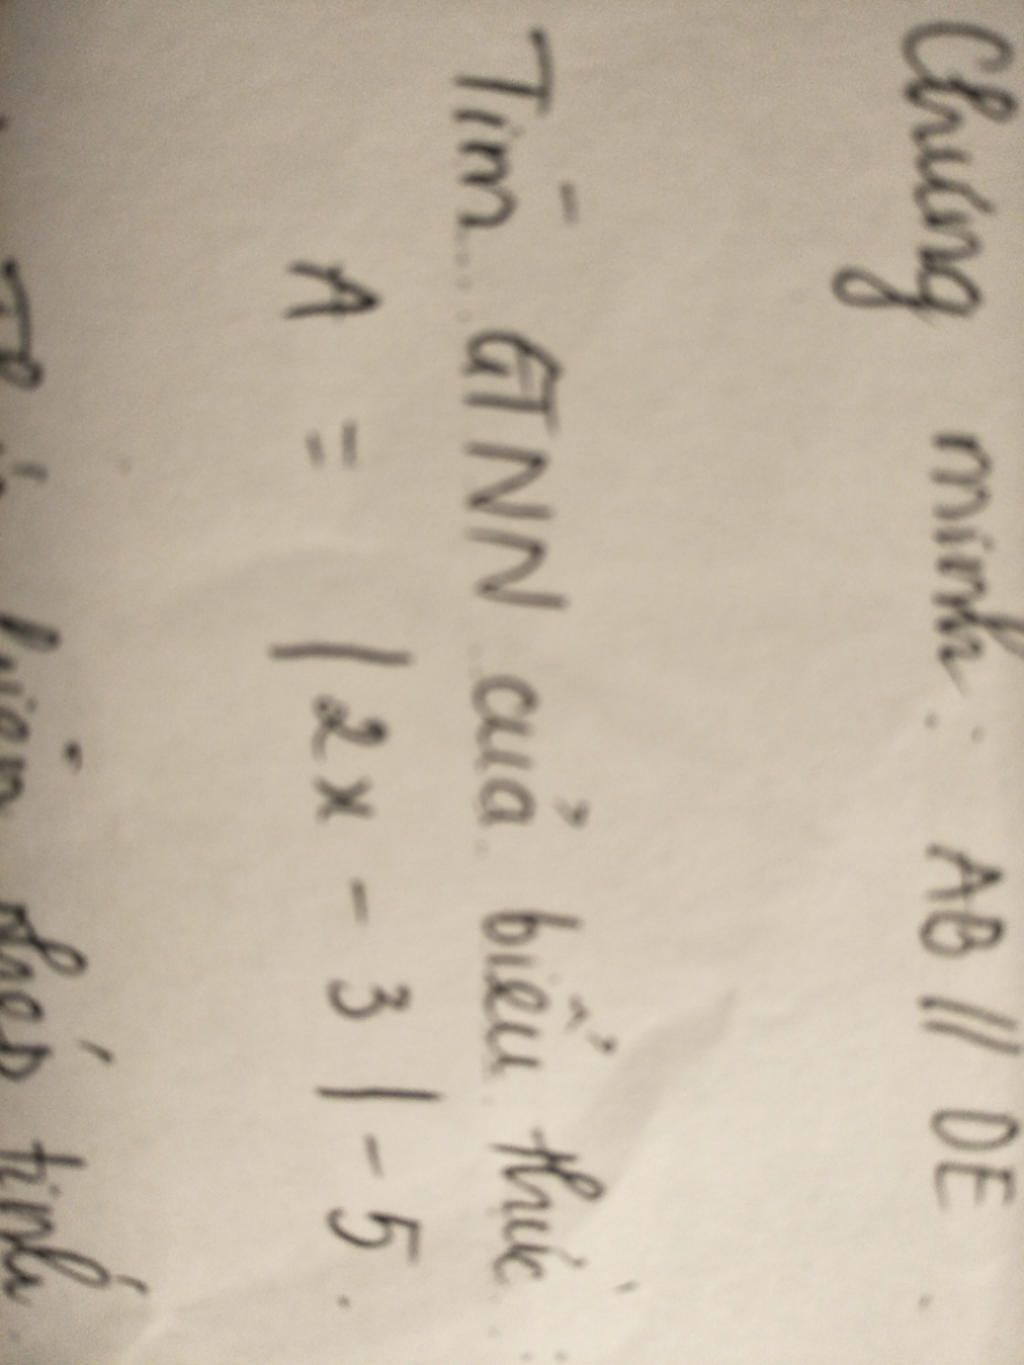 Chứng minh: AB // DE.
Tìm GTNN của biểu thức:
A = |2x - 3| - 5.
hiện phép tính